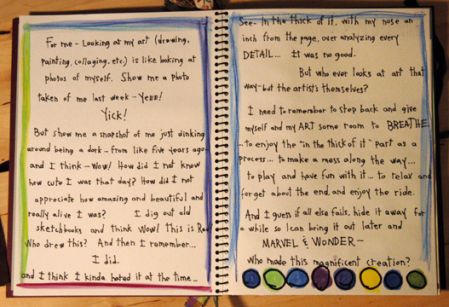 For me - Looking at my art (drawing,
painting, collaging, etc.) is like looking at
photos of myself. Show me a photo
taken of me last week - Yeee!
Yick!
But show me a snapshot of me just dinking
around being a dork - from like five years ago -
and I think - Wow! How did I not know
how cute I was that day? How did I not
appreciate how amazing and beautiful and
really alive I was? I dig out old
sketchbooks and think Wow! This is Rad
Who drew this? And then I remember...
I did.
and I think I kinda hated it at the time...
See - In the thick of it, with my nose an
inch from the page, over analyzing every
DETAIL... It was no good.
But who ever looks at art that
way - but the artist's themselves?
I need to remember to step back and give
myself and my ART some room to BREATHE
... to enjoy the "in the thick of it" part as a
process... to make a mess along the way...
to play and have fun with it... to relax and
forget about the end, and enjoy the ride.
And I guess if all else fails, hide it away for
a while so I can bring it out later and
MARVEL & WONDER -
Who made this magnificent creation?